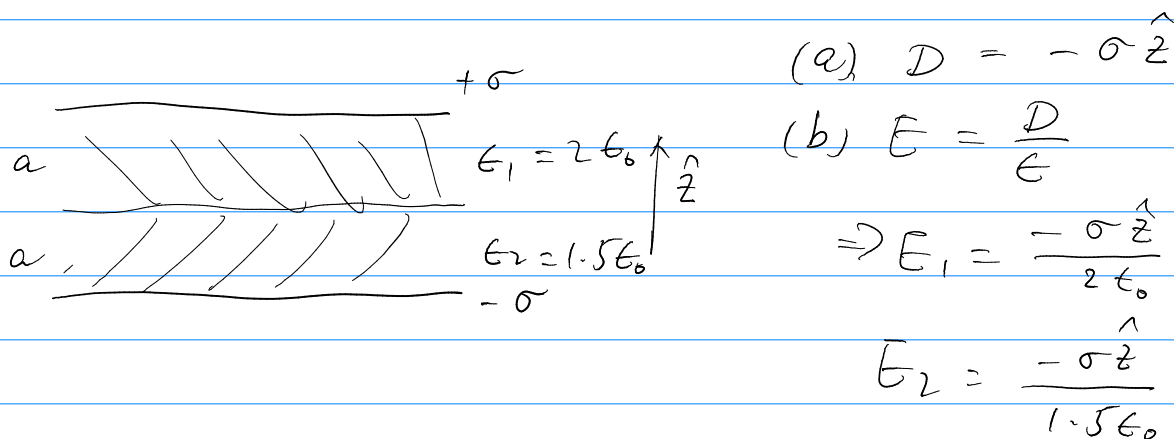 +σ
a
ϵ₁ = 2ϵ₀
ẑ
a
ϵ2 = 1.5ϵ₀
-σ
(a) D = - σ ẑ
(b) E = D/ϵ
⇒ E₁ = -σẑ/2ϵ₀
E₂ = -σẑ/1.5ϵ₀